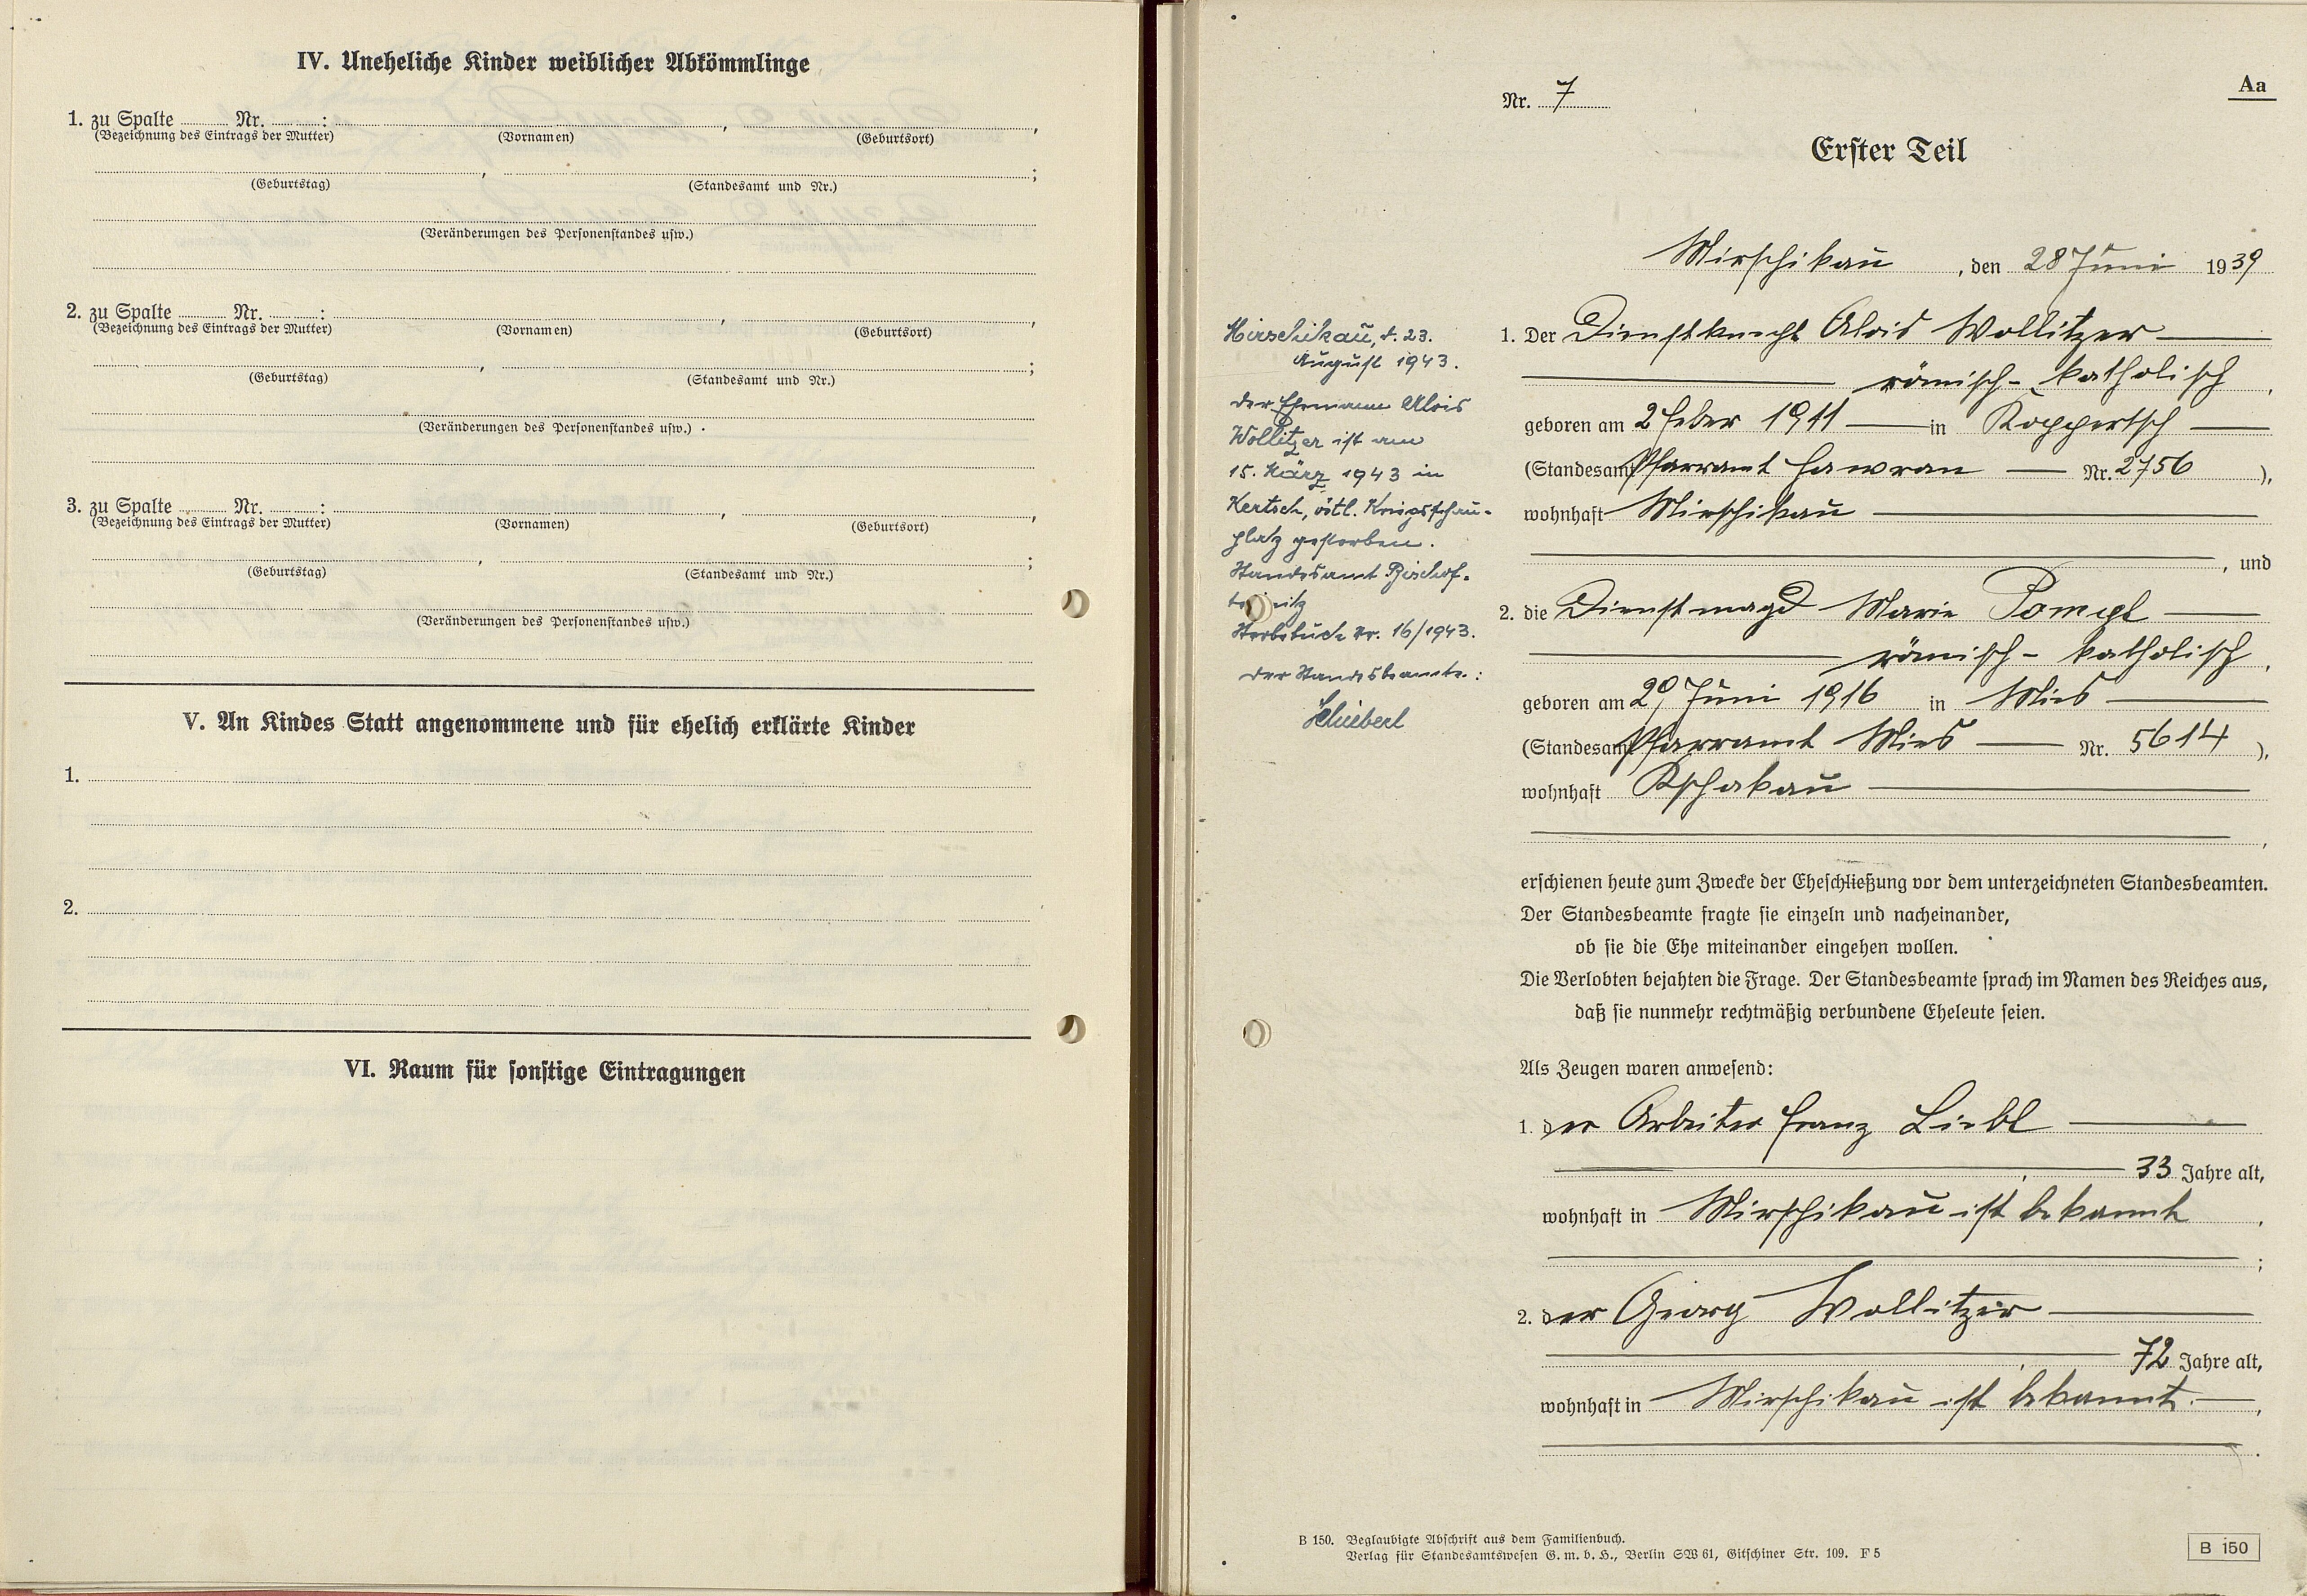 IV. Uneheliche Kinder weiblicher Abkömmlinge
1. zu Spalte Nr. : , ,
(Bezeichnung des Eintrags der Mutter) (Vornamen) (Geburtsort)
, ;
(Geburtstag) (Standesamt und Nr.)
(Veränderungen des Personenstandes usw.)
2. zu Spalte Nr. : , ,
(Bezeichnung des Eintrags der Mutter) (Vornamen) (Geburtsort)
, ;
(Geburtstag) (Standesamt und Nr.)
(Veränderungen des Personenstandes usw.)
3. zu Spalte Nr. : , ,
(Bezeichnung des Eintrags der Mutter) (Vornamen) (Geburtsort)
, ;
(Geburtstag) (Standesamt und Nr.)
(Veränderungen des Personenstandes usw.)
V. An Kindes Statt angenommene und für ehelich erklärte Kinder
1.
2.
VI. Raum für sonstige Eintragungen
Aa
Nr. 7
Erster Teil
Mirschikau, den 28 Juni 1939
Mirschikau, d. 23.
August 1943.
Der Ehemann Alois
Wollitzer ist am
15. März 1943 in
Kertsch, östl. Kriegsschau-
platz gestorben.
Standesamt Bischof-
Sterbebuch Nr. 16/1943.
Der Standesbeamte:
1. Der Dienstknecht Alois Wollitzer
römisch-katholisch,
geboren am 2 Feber 1911 in Koppertsch
(Standesamt Pfarramt Hawran Nr. 2756),
wohnhaft Mirschikau
, und
2. die Dienstmagd Marie
römisch-katholisch,
geboren am 29 Juni 1916 in Mies
(Standesamt Pfarramt Mies Nr. 5614),
wohnhaft Kschakau
,
erschienen heute zum Zwecke der Eheschließung vor dem unterzeichneten Standesbeamten.
Der Standesbeamte fragte sie einzeln und nacheinander,
ob sie die Ehe miteinander eingehen wollen.
Die Verlobten bejahten die Frage. Der Standesbeamte sprach im Namen des Reiches aus,
daß sie nunmehr rechtmäßig verbundene Eheleute seien.
Als Zeugen waren anwesend:
1. der Arbeiter Franz Liebl
, 33 Jahre alt,
wohnhaft in Mirschikau ist bekannt,
;
2. der Georg Wollitzer
, 72 Jahre alt,
wohnhaft in Mirschikau ist bekannt.
.
B 150. Beglaubigte Abschrift aus dem Familienbuch.
Verlag für Standesamtswesen G. m. b. H., Berlin SW 61, Gitschiner Str. 109. F 5
B 150